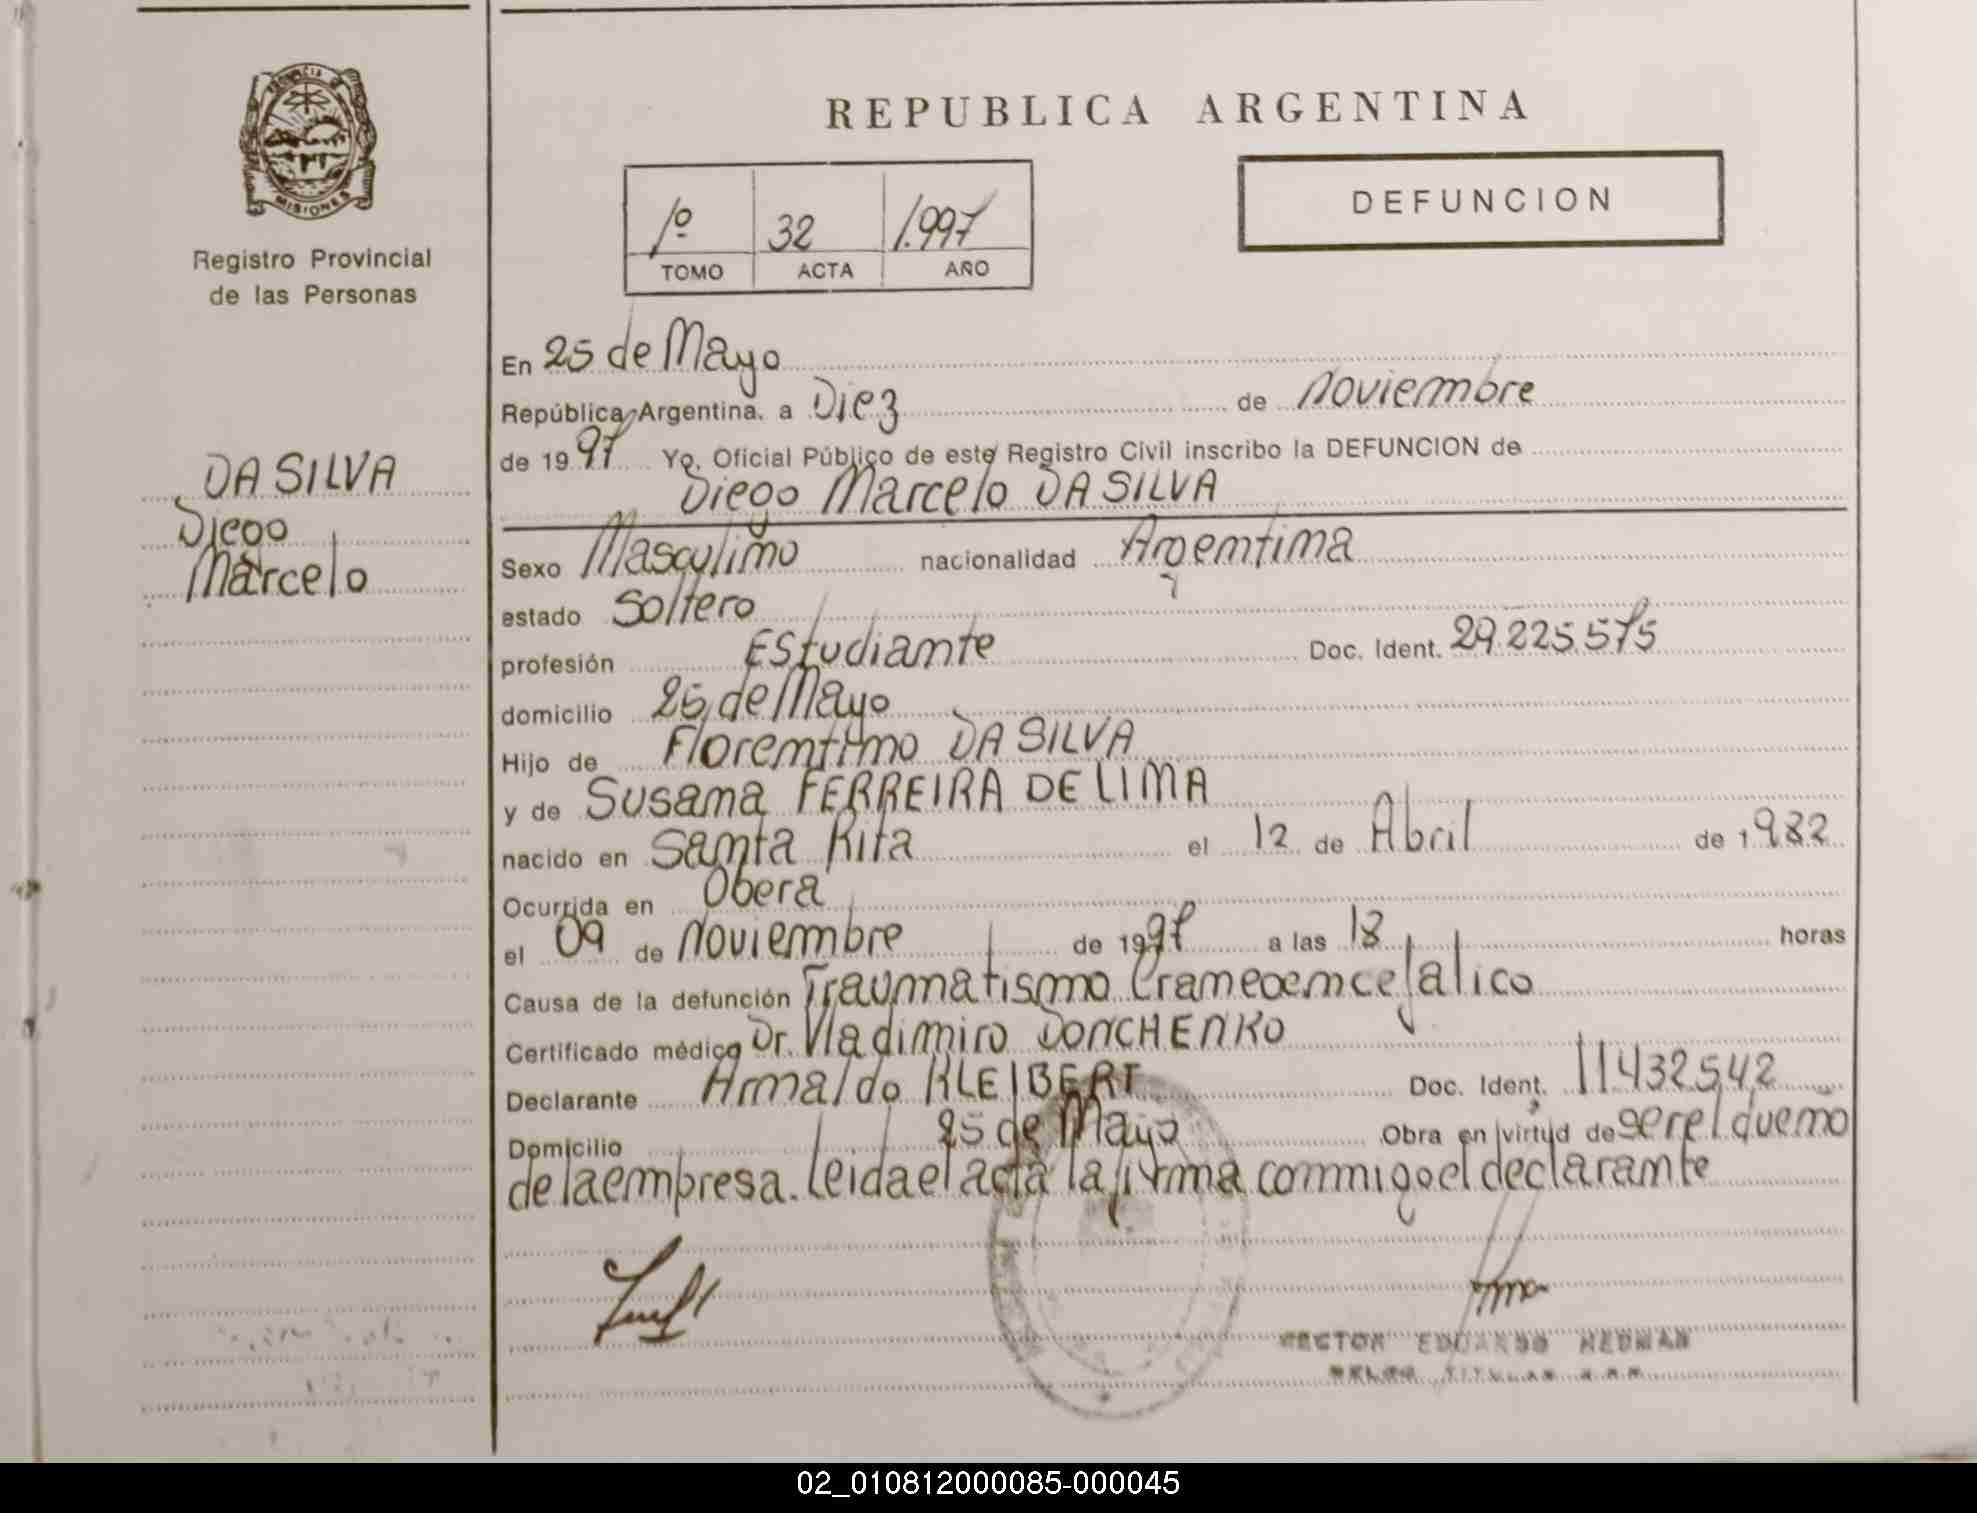 PROVINCIA DE
MISIONES
Registro Provincial
de las Personas
DA SILVA
Diego
Marcelo
REPUBLICA ARGENTINA
1º 32 1.997
TOMO ACTA AÑO
DEFUNCION
En 25 de Mayo
República Argentina, a Diez de Noviembre
de 1997 Yo, Oficial Público de este Registro Civil inscribo la DEFUNCION de
Diego Marcelo DA SILVA
Sexo Masculino nacionalidad Argentina
estado Soltero
profesión Estudiante Doc. Ident. 29.225.575
domicilio 25 de Mayo
Hijo de Florentino DA SILVA
y de Susana FERREIRA DE LIMA
nacido en Santa Rita el 12 de Abril de 1982
Ocurrida en Obera
el 09 de Noviembre de 1997 a las 18 horas
Causa de la defunción Traumatismo Craneoencefalico
Certificado médico Dr. Vladimiro DONCHENKO
Declarante Arnaldo KLEIBERT Doc. Ident. 11432542
Domicilio 25 de Mayo Obra en virtud de ser el dueño
de la empresa. Leida el acta la firma conmigo el declarante
HECTOR EDUARDO NEUMAN
TITULAR
02_010812000085-000045